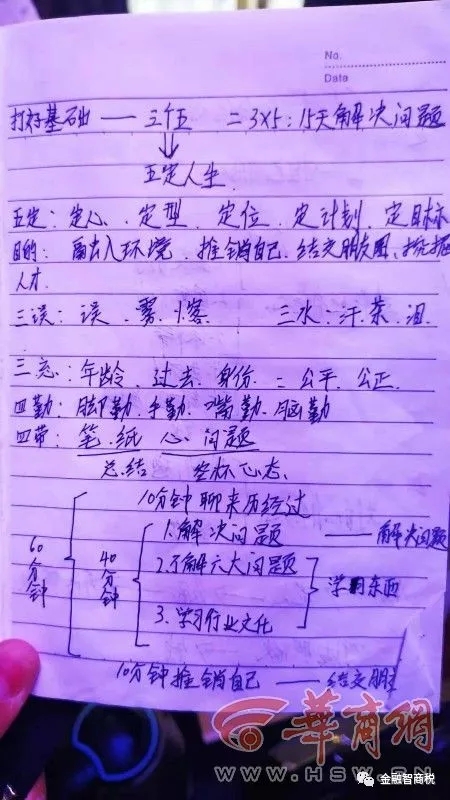 No.
Date
打好基础 —— 三个五 = 3×5: 15天解决问题
五定人生
五定: 定心、定型、定位、定计划、定目标
目的: 融入环境、推销自己、结交朋友圈、挖掘
人才
三误: 误、雾、悟 三水: 汗、茶、泪
三忘: 年龄、过去、身份 = 公平、公正
四勤: 脚勤、手勤、嘴勤、脑勤
四带: 笔、纸、心、问题
总结 空杯心态
10分钟聊来历经过
1.解决问题 —— 解决问题
60分钟 40分钟 2.了解六大问题
学习东西
3.学习行业文化
10分钟推销自己 —— 结交朋
華商網
WWW.HSW.CN
金融智商税